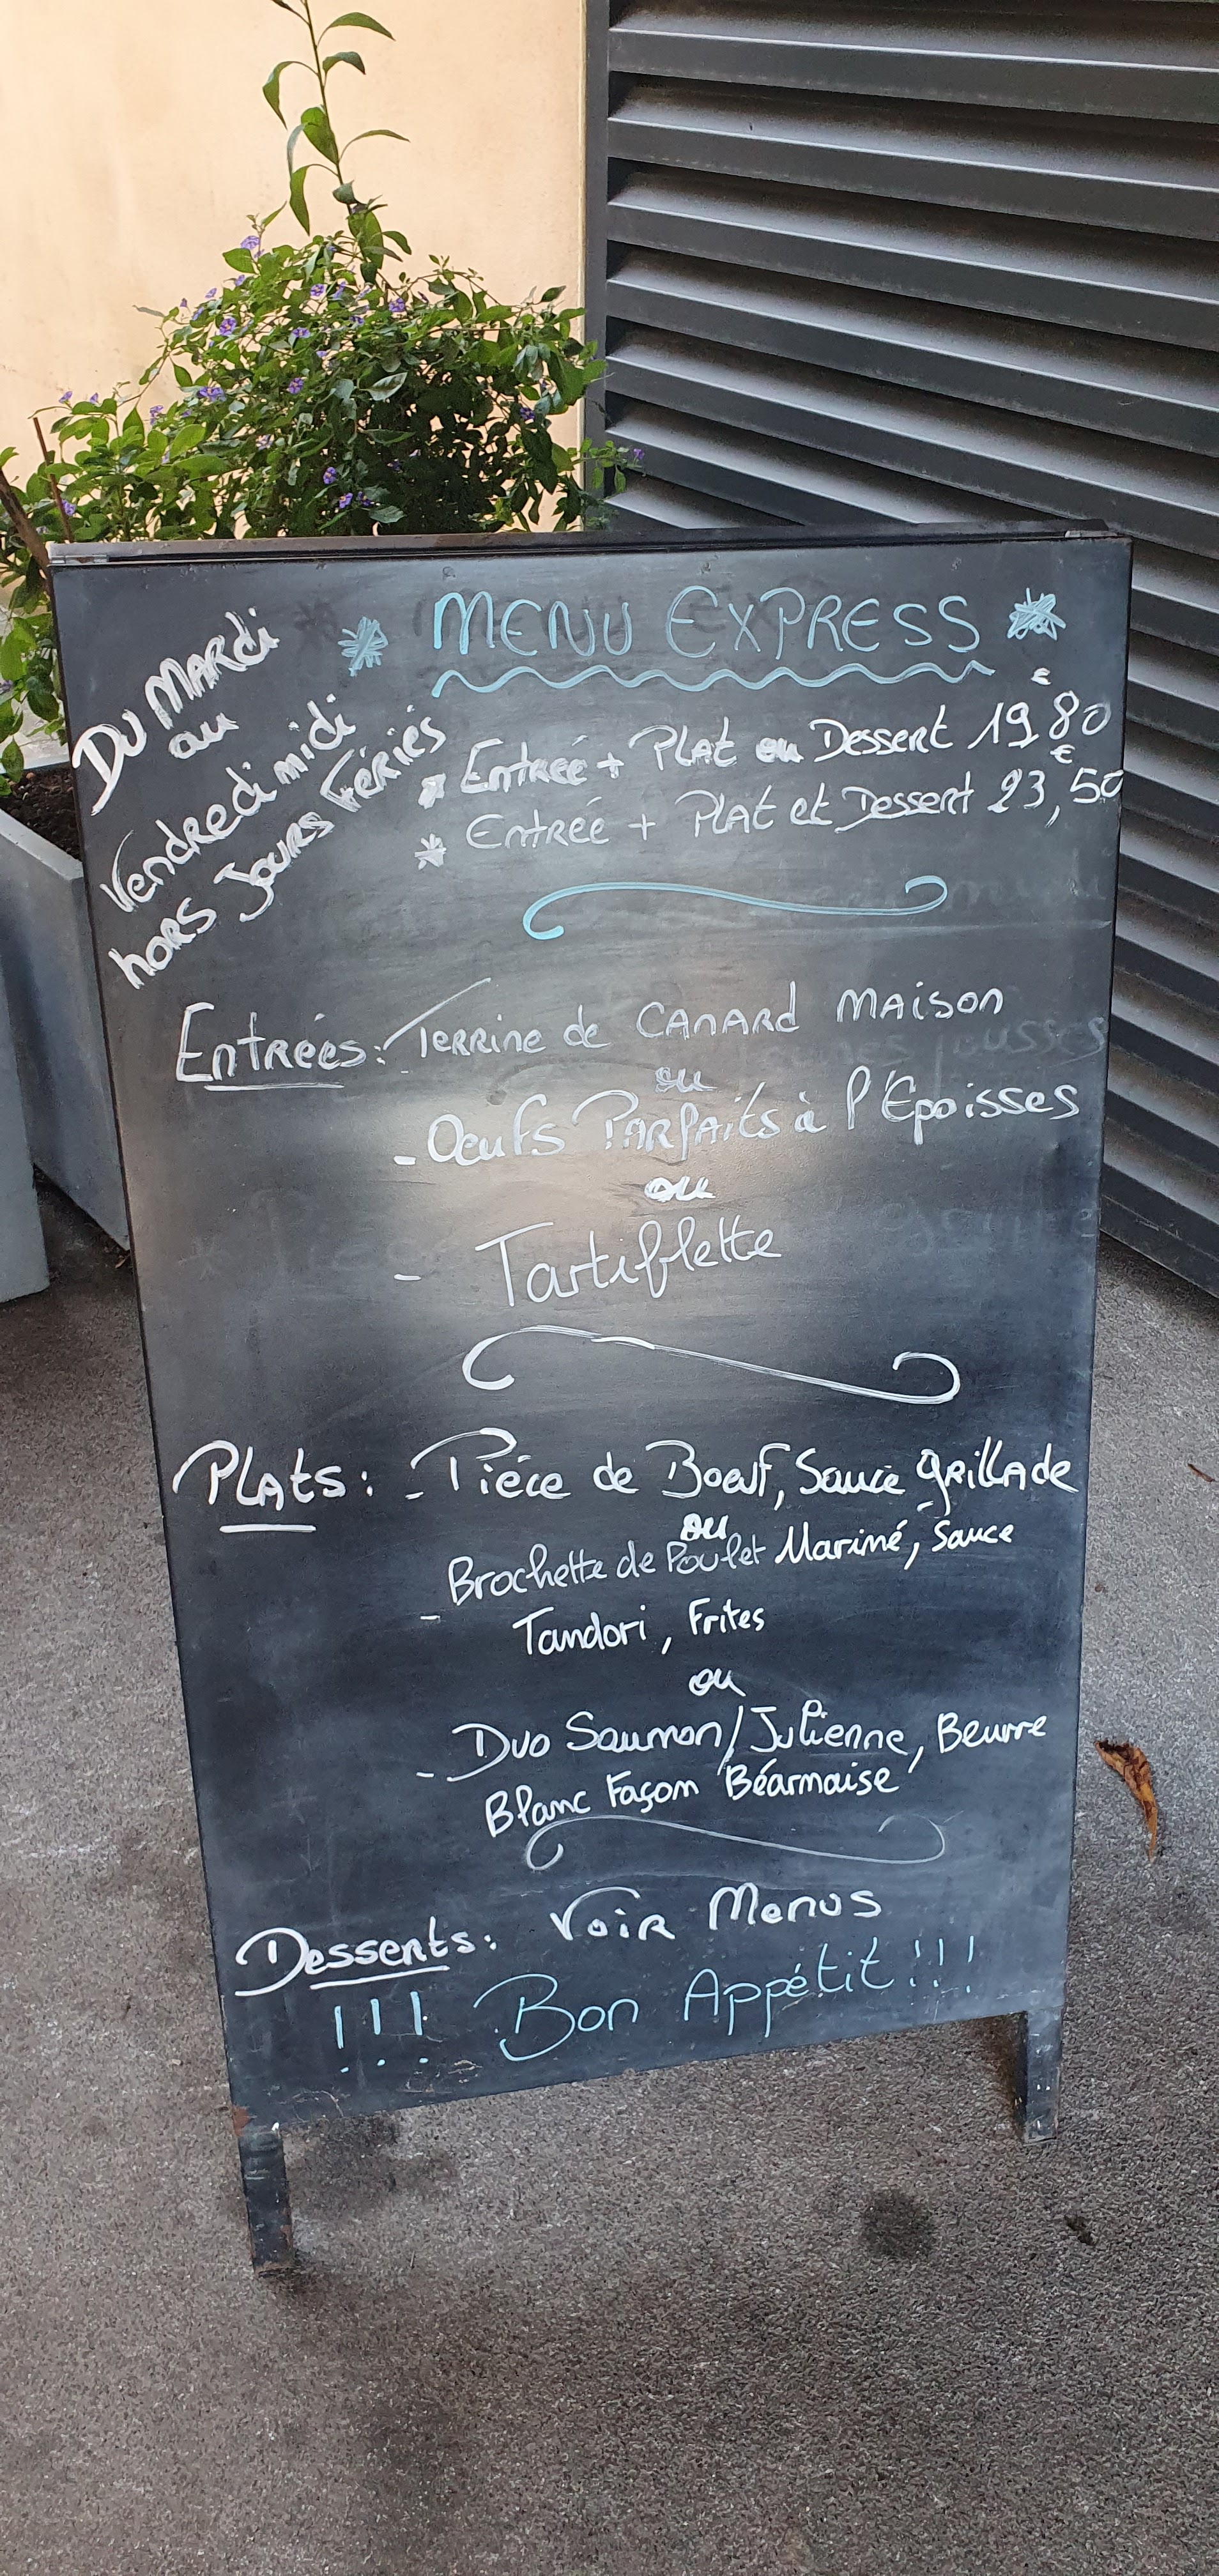 MENU EXPRESS
DU MARDi
au
Vendredi midi
hors Jours Fériés
* Entrée + PLAT ou Dessert 19€80
* Entrée + PLAT et Dessert 23,€50
Entrées: Terrine de CANARd MAISON
ou
- Oeufs PARfaits à l'Epoisses
ou
- Tartiflette
PLATS: - Pièce de Boeuf, Sauce gRiLLAde
ou
- Brochette de Poulet Mariné, Sauce
Tandori, Frites
ou
- Duo Saumon/Julienne, Beurre
Blanc Façon Béarnaise
Desserts: Voir Menus
!!! Bon Appétit!!!